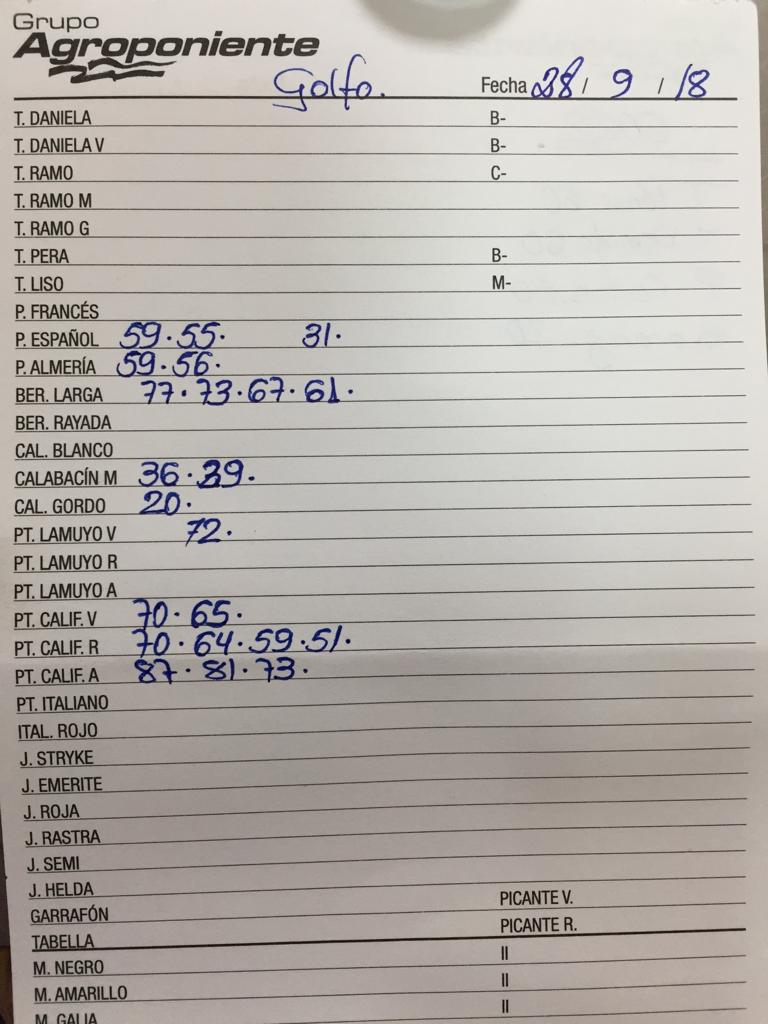 Grupo
Agroponiente
Golfo. Fecha 28 / 9 / 18
T. DANIELA B-
T. DANIELA V B-
T. RAMO C-
T. RAMO M
T. RAMO G
T. PERA B-
T. LISO M-
P. FRANCÉS
P. ESPAÑOL 59. 55. 31.
P. ALMERÍA 59. 56.
BER. LARGA 77. 73. 67. 61.
BER. RAYADA
CAL. BLANCO
CALABACÍN M 36. 39.
CAL. GORDO 20.
PT. LAMUYO V 72.
PT. LAMUYO R
PT. LAMUYO A
PT. CALIF. V 70. 65.
PT. CALIF. R 70. 64. 59. 51.
PT. CALIF. A 87. 81. 73.
PT. ITALIANO
ITAL. ROJO
J. STRYKE
J. EMERITE
J. ROJA
J. RASTRA
J. SEMI
J. HELDA
GARRAFÓN PICANTE V.
TABELLA PICANTE R.
M. NEGRO II
M. AMARILLO II
M. GALIA II